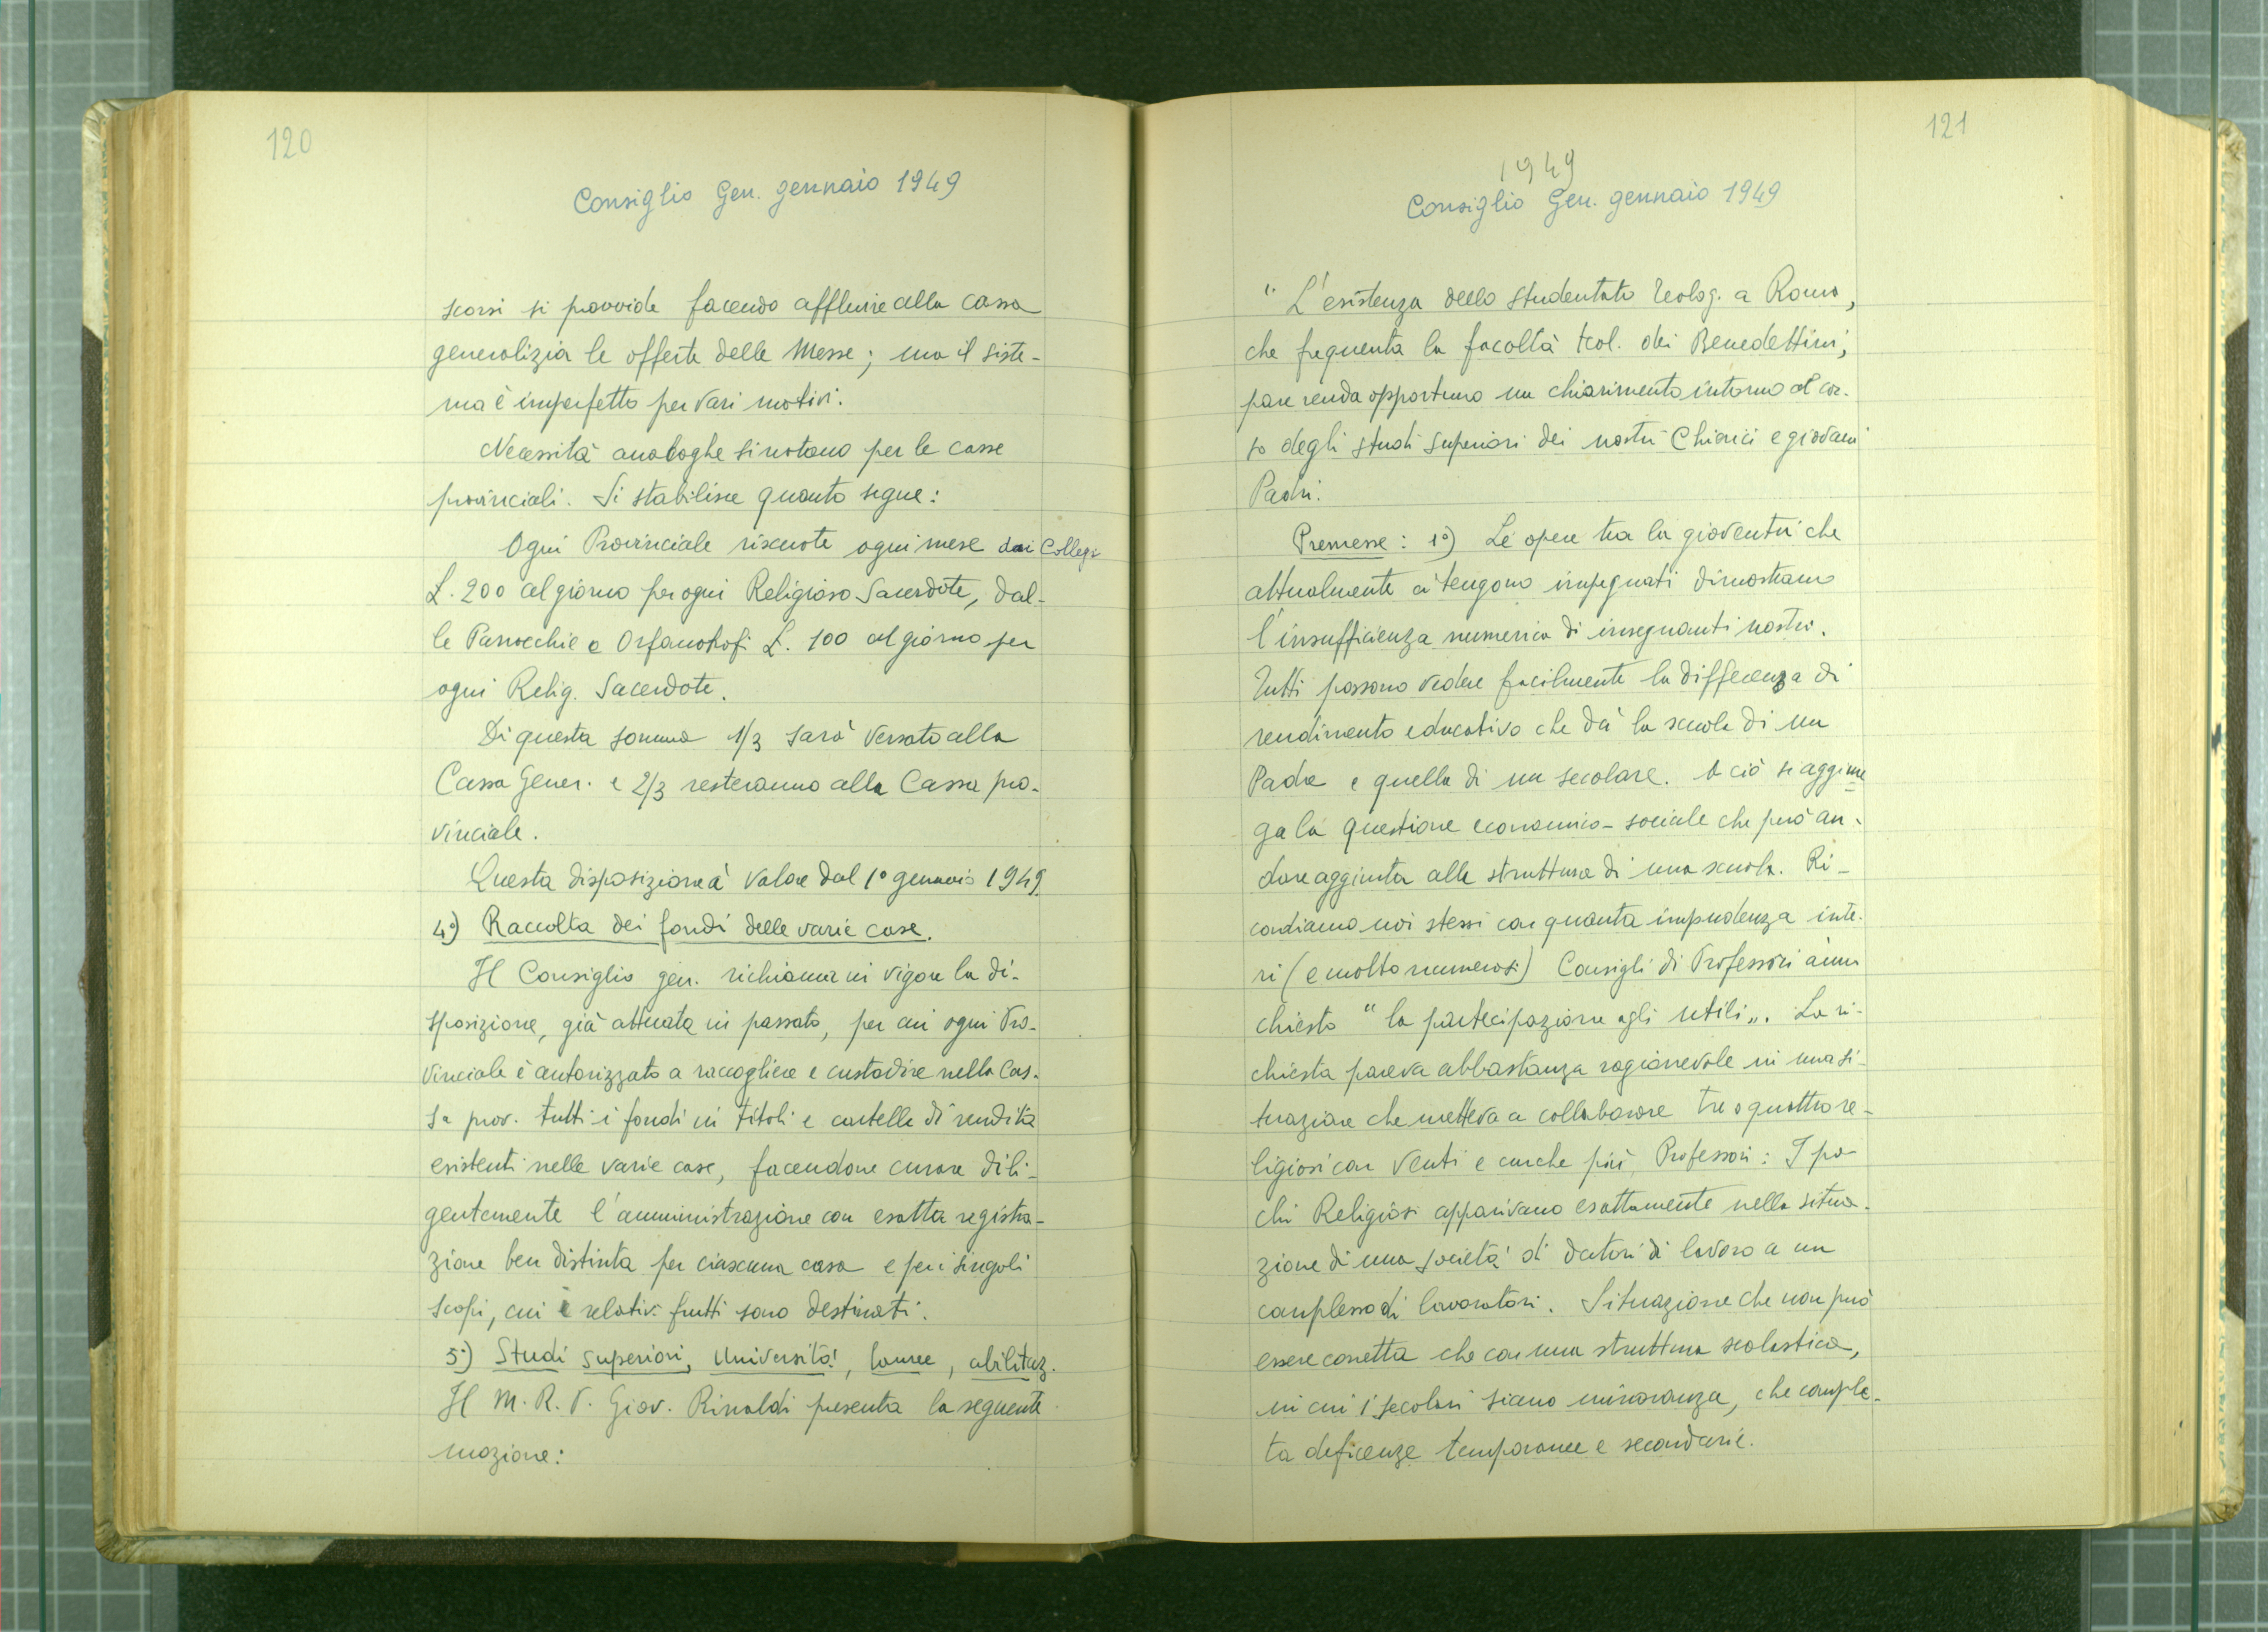 120
Consiglio Gen. gennaio 1949
scorsi si provvide facendo affluire alla cassa
generalizia le offerte delle Messe; ma il siste-
ma è imperfetto per vari motivi.
Necessità analoghe si notano per le casse
provinciali. Si stabilisce quanto segue:
Ogni Provinciale riscuote ogni mese dai Collegi
L. 200 al giorno per ogni Religioso Sacerdote, dal-
le Parrocchie e Orfanotrofi L. 100 al giorno per
ogni Relig. Sacerdote.
Di questa somma 1/3 sarà versato alla
Cassa Gener. e 2/3 resteranno alla Cassa pro-
vinciale.
Questa disposizione à valore dal 1° gennaio 1949.
4°) Raccolta dei fondi delle varie case.
Il Consiglio gen. richiama in vigore la di-
sposizione, già attuata in passato, per cui ogni Pro-
vinciale è autorizzato a raccogliere e custodire nella Cas-
sa prov. tutti i fondi in titoli e cartelle di rendita
esistenti nelle varie case, facendone curare dili-
gentemente l'amministrazione con esatta registra-
zione ben distinta per ciascuna casa e per i singoli
scopi, cui i relativi frutti sono destinati.
5°) Studi superiori, Università, lauree, abilitaz.
Il M. R. P. Giov. Rinaldi presenta la seguente
mozione:
121
1949
Consiglio Gen. gennaio 1949
"L'esistenza dello studentato teolog. a Roma,
che frequenta la facoltà teol. dei Benedettini,
pare renda opportuno un chiarimento intorno al cor-
so degli studi superiori dei nostri Chierici e giovani
Padri.
Premesse: 1°) Le opere tra la gioventù che
attualmente ci tengono impegnati dimostrano
l'insufficienza numerica di insegnanti nostri.
Tutti possono vedere facilmente la differenza di
rendimento educativo che dà la scuola di un
Padre e quella di un secolare. A ciò si aggiun
ga la questione economico-sociale che può an-
dare aggiunta alla struttura di una scuola. Ri-
cordiamo noi stessi con quanta impudenza inte-
ri (e molto numerosi) Consigli di Professori ànno
chiesto "la partecipazione agli utili„. La ri-
chiesta pareva abbastanza ragionevole in una si-
tuazione che metteva a collaborare tre o quattro re-
ligiosi con venti e anche più Professori: I po-
chi Religiosi apparivano esattamente nella situa-
zione di una società di datori di lavoro a un
complesso di lavoratori. Situazione che non può
essere corretta che con una struttura scolastica,
in cui i secolari siano minoranza, che comple-
ta deficenze temporanee e secondarie.